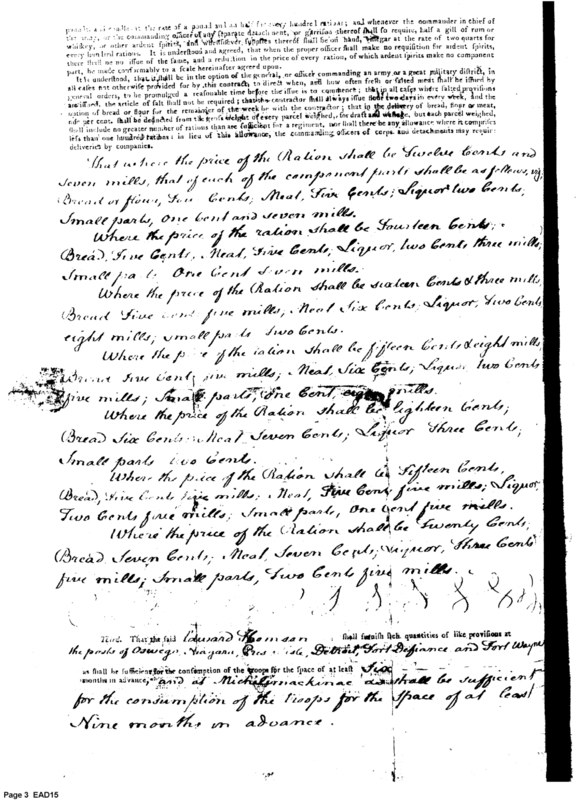 pounds, and candles at the rate of a pound and an half for every hundred rations; and whenever the commander in chief of
the army, or the commanding officer of any separate detachment, or garrison thereof shall so require, half a gill of rum or
whiskey, or other ardent spirits, and whensoever, supplies thereof shall be on hand, vinegar at the rate of two quarts for
every hundred rations. It is understood and agreed, that when the proper officer shall make no requisition for ardent spirits,
there shall be no issue of the same, and a reduction in the price of every ration, of which ardent spirits make no component
part, be made conformably to a scale hereinafter agreed upon.
It is understood, that it shall be in the option of the general, or officer commanding an army or a great military district, in
all cases not otherwise provided for by this contract, to direct when, and how often fresh or salted meat shall be issued by
general orders, to be promulged a reasonable time before the issue is to commence; that in all cases where salted provisions
are issued, the article of salt shall not be required; that the contractor shall always issue flour two days in every week, and the
option of bread or flour for the remainder of the week be with the contractor; that in the delivery of bread, flour or meat,
per cent. shall be deducted from the gross weight of every parcel weighed, for draft and wastage, but each parcel weighed,
shall include no greater number of rations than are sufficient for a regiment, nor shall there be any allowance where it comprises
less than one hundred rations: in lieu of this allowance, the commanding officers of corps and detachments may require
deliveries by companies.
That where the price of the Ration shall be Twelve Cents and
Seven mills, that of each of the component parts shall be as follows, viz,
Bread or flour, Cents; Meat, Five Cents; Liquor two Cents;
Small parts, One Cent and seven mills.
Where the price of the ration shall be Fourteen Cents;
Bread, Five Cents, Meat, Five Cents; Liquor, two Cents three mills;
Small parts One Cent seven mills.
Where the price of the Ration shall be sixteen Cents & three mills,
Bread Five Cents five mills, Meat Six Cents; Liquor, Two Cents
eight mills; small parts Two Cents.
Where the price of the ration shall be fifteen Cents & eight mills
Bread Five Cents five mills; Meat, Six Cents; Liquor two Cents
five mills; Small parts, One Cent, eight mills.
Where the price of the Ration shall be Eighteen Cents;
Bread Six Cents; Meat Seven Cents; Liquor Three Cents;
Small parts two Cents.
Where the price of the Ration shall be Fifteen Cents,
Bread, Five Cents five mills; Meat, Five Cents five mills; Liquor,
Two Cents five mills; Small parts, One Cent five mills.
Where the price of the Ration shall be Twenty Cents;
Bread Seven Cents; Meat, Seven Cents; Liquor, Three Cents
five mills; Small parts, Two Cents five mills.
Third. That the said Edward Thomson shall furnish such quantities of like provisions at
the posts of Oswego Niagara, Presque isle, Detroit, Fort Defiance and Fort Wayne
as shall be sufficient for the consumption of the troops for the space of at least Six
months in advance, and at Michilimackinac as shall be sufficient
for the consumption of the troops for the space of at least
Nine months in advance.
Page 3 EAD15